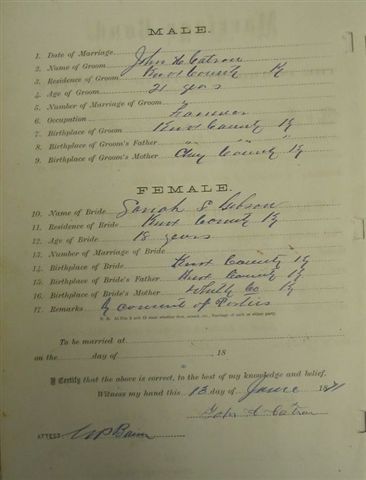 MALE.
1. Date of Marriage
2. Name of Groom John H Catron
3. Residence of Groom Knox County Ky
4. Age of Groom 21 years
5. Number of Marriage of Groom
6. Occupation Farmer
7. Birthplace of Groom Knox County Ky
8. Birthplace of Groom's Father " " "
9. Birthplace of Groom's Mother Clay County Ky
FEMALE.
10. Name of Bride Sarah Gibson
11. Residence of Bride Knox County Ky
12. Age of Bride 18 years
13. Number of Marriage of Bride
14. Birthplace of Bride Knox County Ky
15. Birthplace of Bride's Father Knox County Ky
16. Birthplace of Bride's Mother Whitly Co Ky
17. Remarks By consent of Parties
To be married at
on the day of 18
I Certify that the above is correct, to the best of my knowledge and belief.
Witness my hand this 13 day of June 18
John Catron
ATTEST